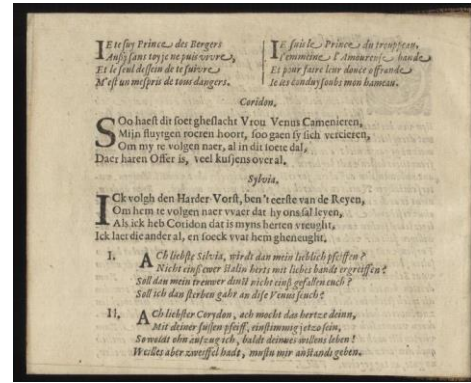 IE te suy Prince des Bergers
Aussi sans toy je ne puis vivre,
Et le seul dessein de te suivre
M'est un mespris de tous dangers.
IE suis le Prince du trouppeau,
J'emmeine l'Amoureuse bande
Et pour faire leur douce offrande
Je les conduy soubs mon hameau.
Coridon.
SOo haest dit soet gheslacht Vrou Venus Camenieren,
Mijn fluytgen roeren hoort, soo gaen sy sich vercieren,
Om my te volgen naer, al in dit soete dal,
Daer haren Offer is, veel kusjens over al.
Sylvia.
ICk volgh den Harder-Vorst, ben 't eerste van de Reyen,
Om hem te volgen naer vvaer dat hy ons sal leyen,
Als ick heb Coridon dat is myns herten vreught,
Ick laet die ander al, en soeck vvat hem gheneught.
I. ACh liebste Silvia, wirdt dan mein lieblich pfeiffen?
Nicht einß ewer Stalin herts mit liebes bandt ergreiffen?
Soll dan mein trewer dinst nicht einß gefallen euch?
Soll ich dan sterben gahr an dise Venus seuch?
II. ACh liebster Corydon, ach mocht das hertze deinn,
Mit deiner sussen pfeiff, einstimmig jetzo sein,
So woldt ohn aufzug ich, baldt deines willens leben!
Weilles aber zweiffel hadt, mustu mir anstandt geben.